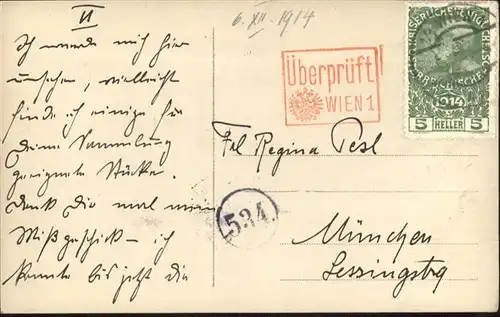 II
Ich werde mich hier
umsehen, vielleicht
finde ich einige für
Deine Sammlung
geeignete Stücke.
Denk Dir mal mein
Mißgeschick – ich
konnte bis jetzt die
6. XII. 1914
Überprüft
WIEN 1
1914
5 HELLER 5
Frl Regina Pesl
534
München
Lessingstr 9